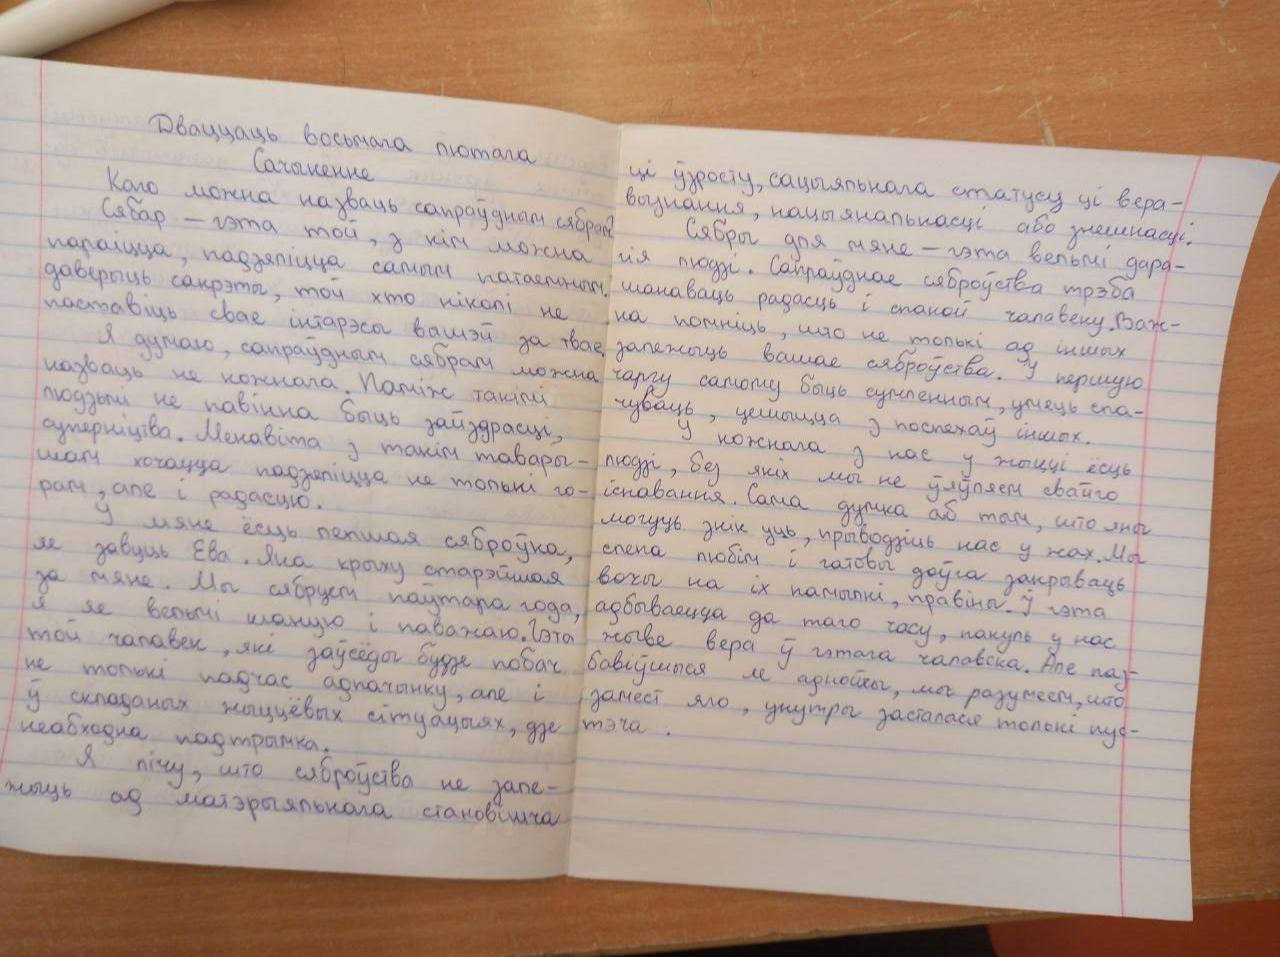 Дваццаць восьмага лютага
Сачыненне
Каго можна назваць сапраўдным сябрам?
Сябар – гэта той, з кім можна
параіцца, падзяліцца самым патаемным,
даверыць сакрэты, той хто ніколі не
паставіць свае інтарэсы вышэй за твае.
Я думаю, сапраўдным сябрам можна
назваць не кожнага. Паміж такімі
людзьмі не павінна быць зайздрасці,
суперніцтва. Менавіта з такім тавары-
шам хочацца падзяліцца не толькі го-
рам, але і радасцю.
У мяне ёсць лепшая сяброўка,
яе завуць Ева. Яна крыху старэйшая
за мяне. Мы сябруем паўтара года,
я яе вельмі шаную і паважаю. Гэта
той чалавек, які заўсёды будзе побач
не толькі падчас адпачынку, але і
ў складаных жыццёвых сітуацыях, дзе
необходна падтрымка.
Я лічу, што сяброўства не зале-
жыць ад матэрыяльнага становішча
ці ўзросту, сацыяльнага статусу ці вера-
вызнання, нацыянальнасці або знешнасці.
Сябры для мяне – гэта вельмі дара-
гія людзі. Сапраўднае сяброўства трэба
шанаваць радасць і спакой чалавеку. Важ-
на помніць, што не толькі ад іншых
залежыць вашае сяброўства. У першую
чаргу самому быць сумленным, умець спа-
чуваць, цешыцца з поспехаў іншых.
У кожнага з нас у жыцці ёсць
людзі, без якіх мы не ўяўляем свайго
існавання. Сама думка аб тым, што яны
могуць знікнуць, прыводзіць нас у жах. Мы
слепа любім і гатовы доўга закрываць
вочы на іх памылкі, правіны. Ў гэта
адбываецца да таго часу, пакуль у нас
жыве вера ў гэтага чалавека. Але паз-
бавіўшыся яе аднойчы, мы разумеем, што
замест яго, унутры засталася толькі пус-
тэча.